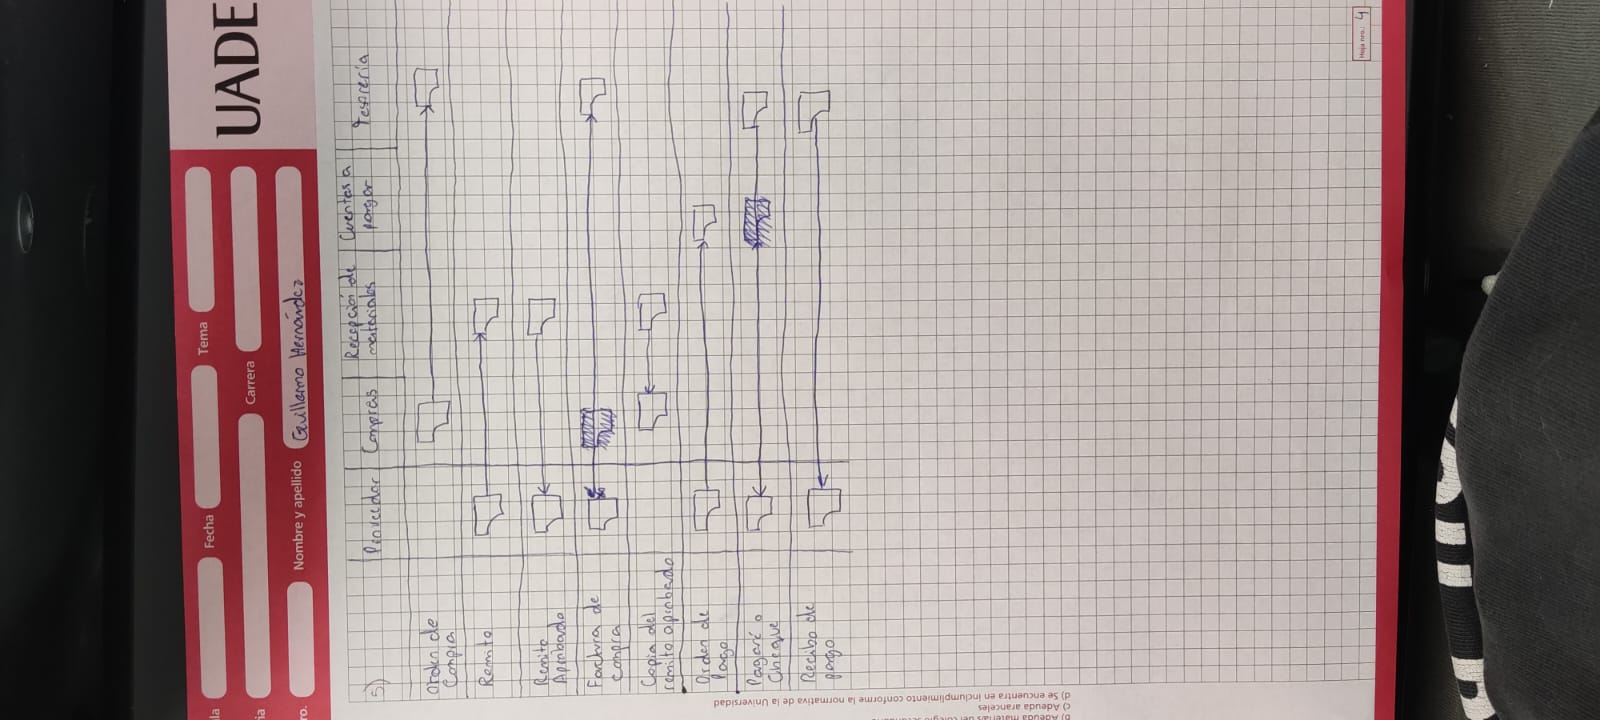 la
Fecha
Tema
UADE
ia
Carrera
ro.
Nombre y apellido
Guillermo Hernández
5)
Proveedor
Compras
Recepción de
materiales
Cuentas a
pagar
Tesorería
Orden de
Compra
Remito
Remito
Aprobado
Factura de
compra
Copia del
remito aprobado
Orden de
Pago
Pagaré o
Cheque
Recibo de
pago
c) Adeuda aranceles
d) Se encuentra en incumplimiento conforme la normativa de la Universidad
Hoja nro.: 4